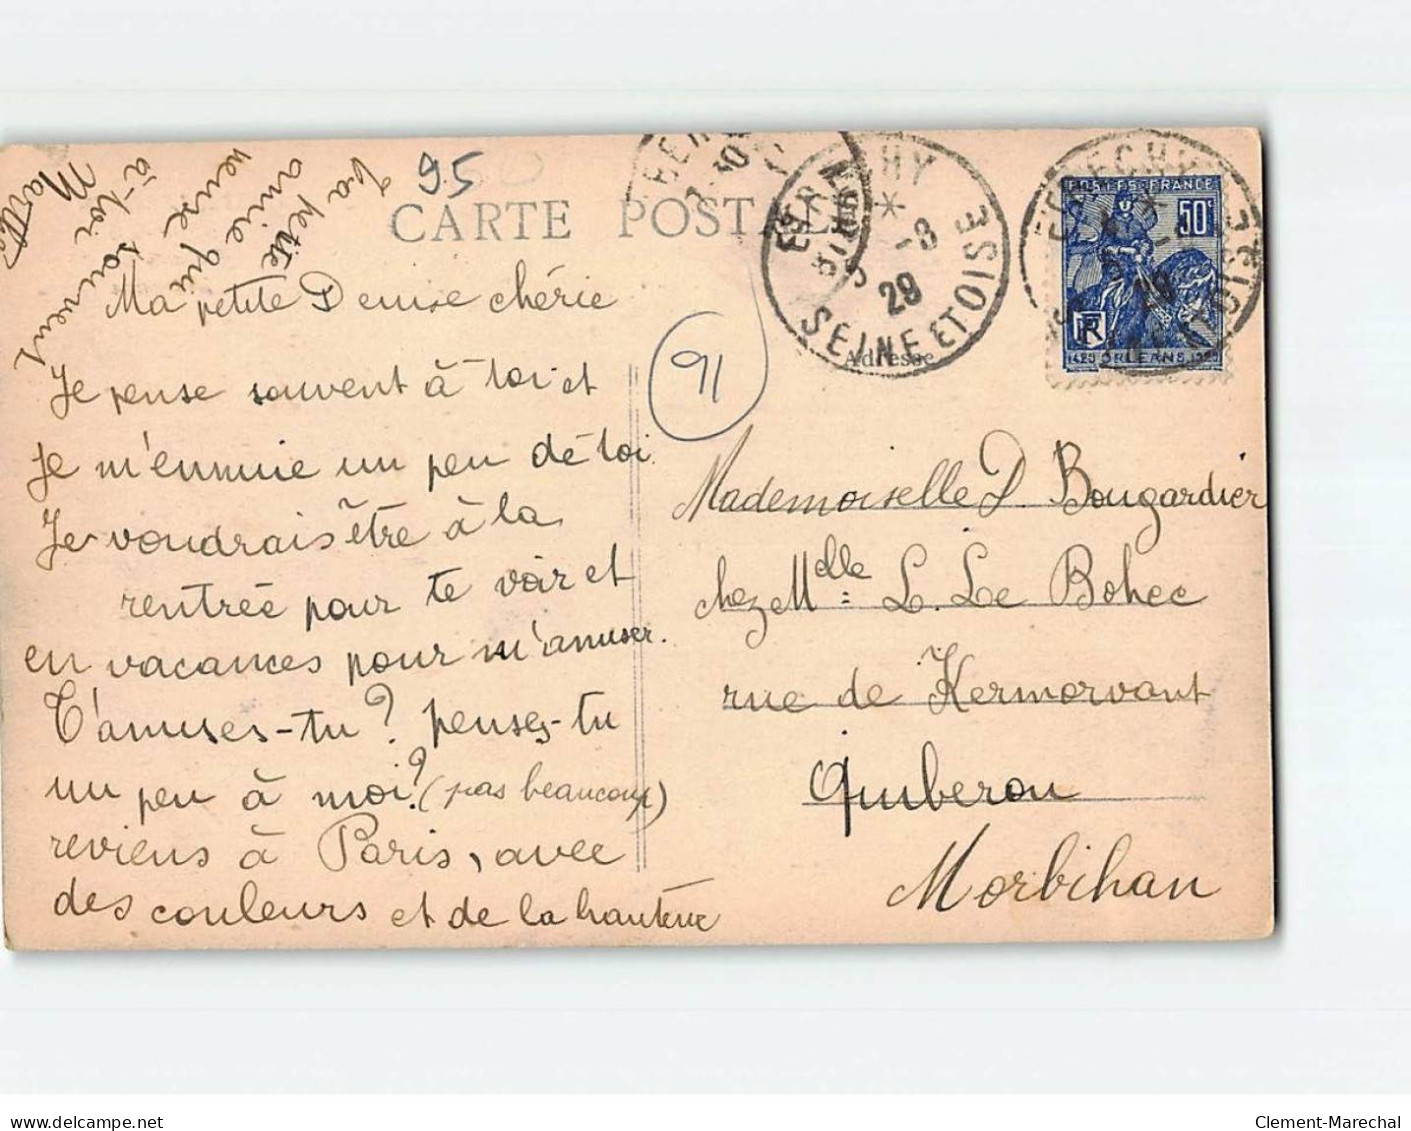 95
CARTE POSTALE
Ma petite Denise chérie
Je pense souvent à toi et
Je m'ennuie un peu de toi
Je voudrais être à la
rentrée pour te voir et
en vacances pour m'amuser.
T'amuses-tu? penses-tu
un peu à moi? (pas beaucoup)
reviens à Paris, avec
des couleurs et de la hauteur
Ta petite
amie qui
pense
à toi souvent
91
ETRECHY
5 -8
29
SEINE ET OISE
Adresse
POSTES FRANCE
50c
RF
1429 ORLEANS 1929
Mademoiselle D. Bougardier
chez Melle L. Le Bohec
rue de Kermorvant
Quiberon
Morbihan
www.delcampe.net
Clement-Marechal